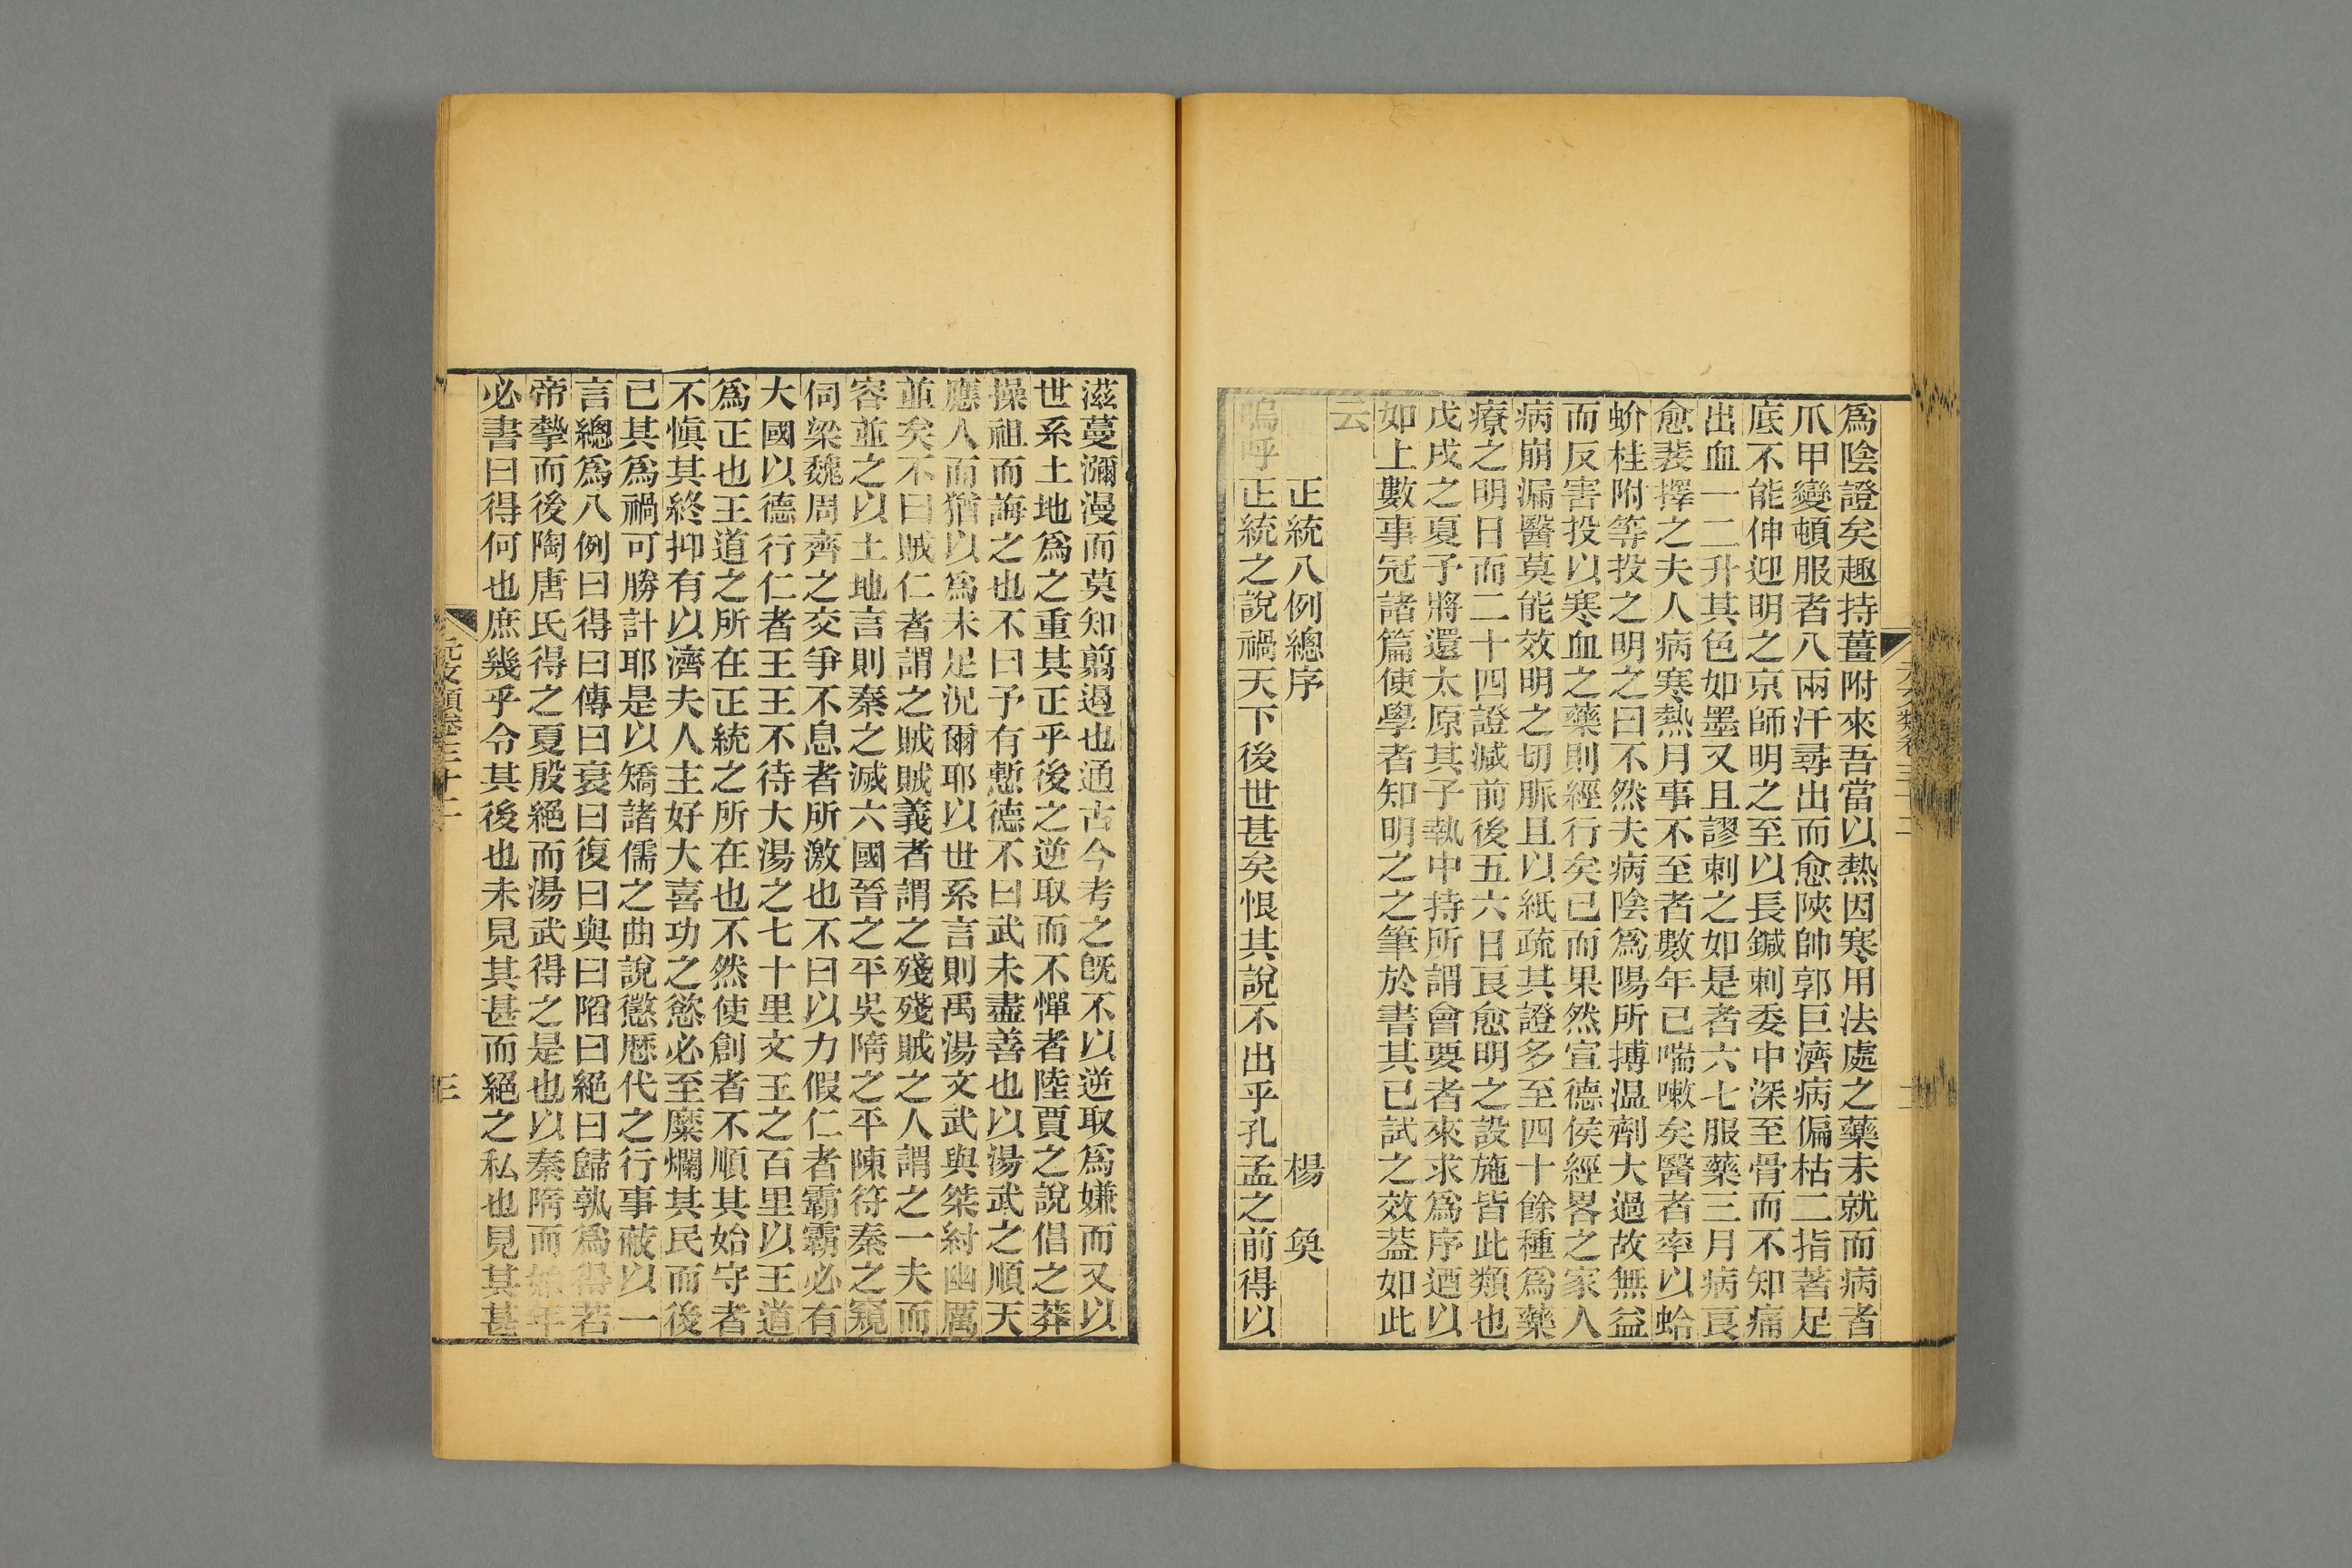 爲陰證矣趣持薑附來吾當以熱因寒用法處之藥未就而病者
爪甲變頓服者八兩汗尋出而愈陝帥郭巨濟病偏枯二指著足
底不能伸迎明之京師明之至以長鍼刺委中深至骨而不知痛
出血一二升其色如墨又且謬刺之如是者六七服藥三月病良
愈裴擇之夫人病寒熱月事不至者數年已喘嗽矣醫者率以蛤
蚧桂附等投之明之曰不然夫病陰爲陽所搏温劑大過故無益
而反害投以寒血之藥則經行矣已而果然宣德侯經畧之家人
病崩漏醫莫能效明之切脈且以紙疏其證多至四十餘種爲藥
療之明日而二十四證減前後五六日良愈明之設施皆此類也
戊戌之夏予將還太原其子執中持所謂會要者來求爲序迺以
如上數事冠諸篇使學者知明之之筆於書其已試之效葢如此
云
正統八例總序 楊奐
嗚呼正統之說禍天下後世甚矣恨其說不出乎孔孟之前得以
滋蔓瀰漫而莫知翦遏也通古今考之旣不以逆取爲嫌而又以
世系土地爲之重其正乎後之逆取而不憚者陸賈之說倡之莽
操祖而誨之也不曰予有慙德不曰武未盡善也以湯武之順天
應人而猶以爲未足況爾耶以世系言則禹湯文武與桀紂幽厲
並矣不曰賊仁者謂之賊賊義者謂之殘殘賊之人謂之一夫而
容並之以土地言則秦之滅六國晉之平吳隋之平陳符秦之窺
伺梁魏周齊之交爭不息者所激也不曰以力假仁者霸霸必有
大國以德行仁者王王不待大湯之七十里文王之百里以王道
爲正也王道之所在正統之所在也不然使創者不順其始守者
不愼其終抑有以濟夫人主好大喜功之慾必至糜爛其民而後
已其爲禍可勝計耶是以矯諸儒之曲說懲歷代之行事蔽以一
言總爲八例曰得曰傳曰衰曰復曰與曰陷曰絕曰歸孰爲得若
帝摯而後陶唐氏得之夏殷絕而湯武得之是也以秦隋而始年
必書曰得何也庶幾乎令其後也未見其甚而絕之私也見其甚
元文類卷三十二
三